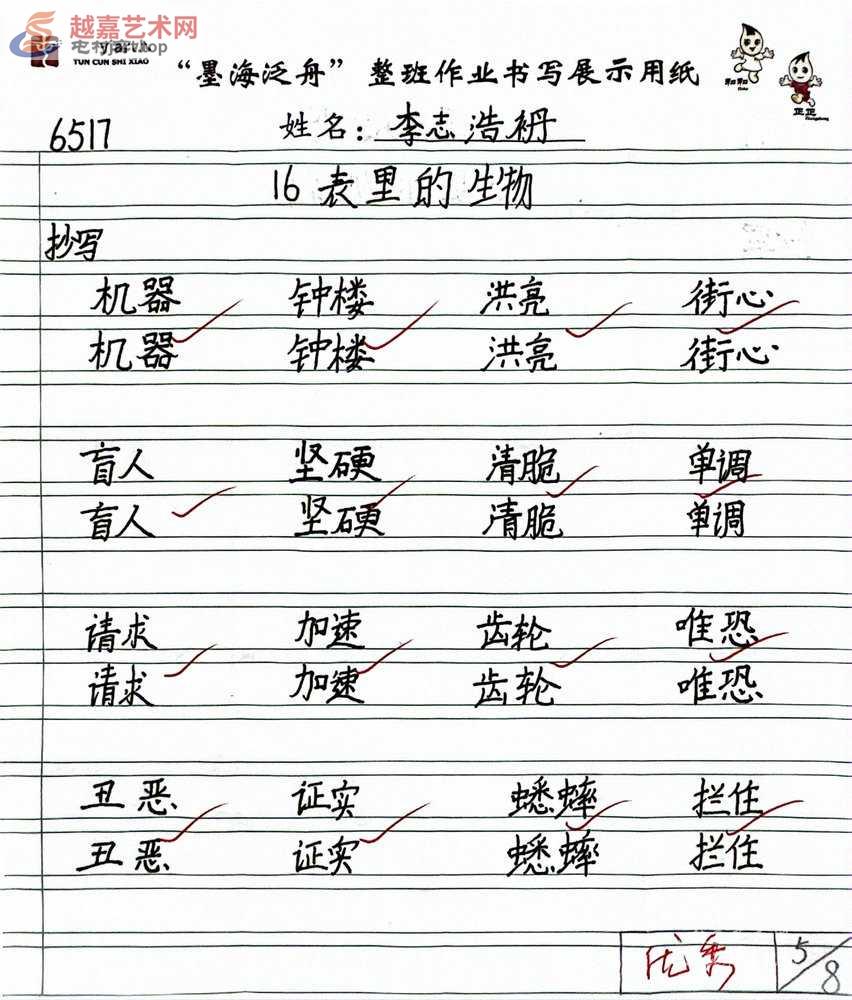 越嘉艺术网
yjart.top
TUN CUN SHI XIAO
“墨海泛舟” 整班作业书写展示用纸
和和
正正
6517 姓名：李志浩
16 表里的生物
抄写
机器 钟楼 洪亮 街心
机器 钟楼 洪亮 街心
盲人 坚硬 清脆 单调
盲人 坚硬 清脆 单调
请求 加速 齿轮 唯恐
请求 加速 齿轮 唯恐
丑恶 证实 蟋蟀 拦住
丑恶 证实 蟋蟀 拦住
优秀 5/8